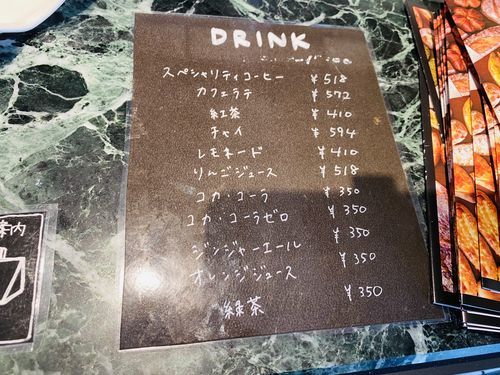 DRINK
スペシャリティコーヒー ¥518
カフェラテ ¥572
紅茶 ¥410
チャイ ¥594
レモネード ¥410
りんごジュース ¥518
コカ・コーラ ¥350
コカ・コーラゼロ ¥350
ジンジャーエール ¥350
オレンジジュース ¥350
緑茶 ¥350
案内